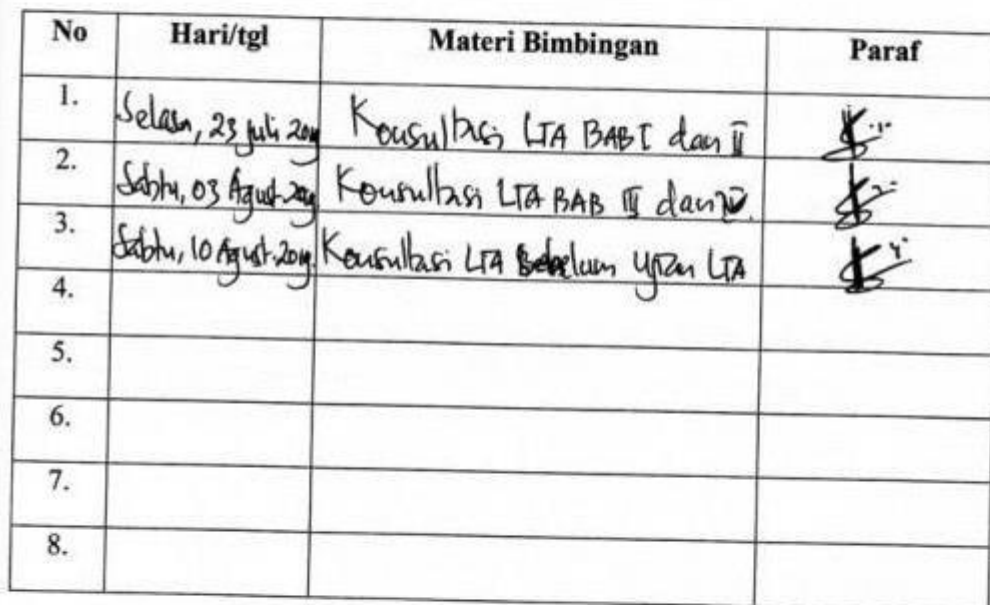 No Hari/tgl Materi Bimbingan Paraf
1. Selasa, 23 Juli 2019 Konsultasi LTA BAB I dan II
2. Sabtu, 03 Agust 2019 Konsultasi LTA BAB III dan IV.
3. Sabtu, 10 Agust. 2019. Konsultasi LTA Sebelum Ujian LTA
4.
5.
6.
7.
8.